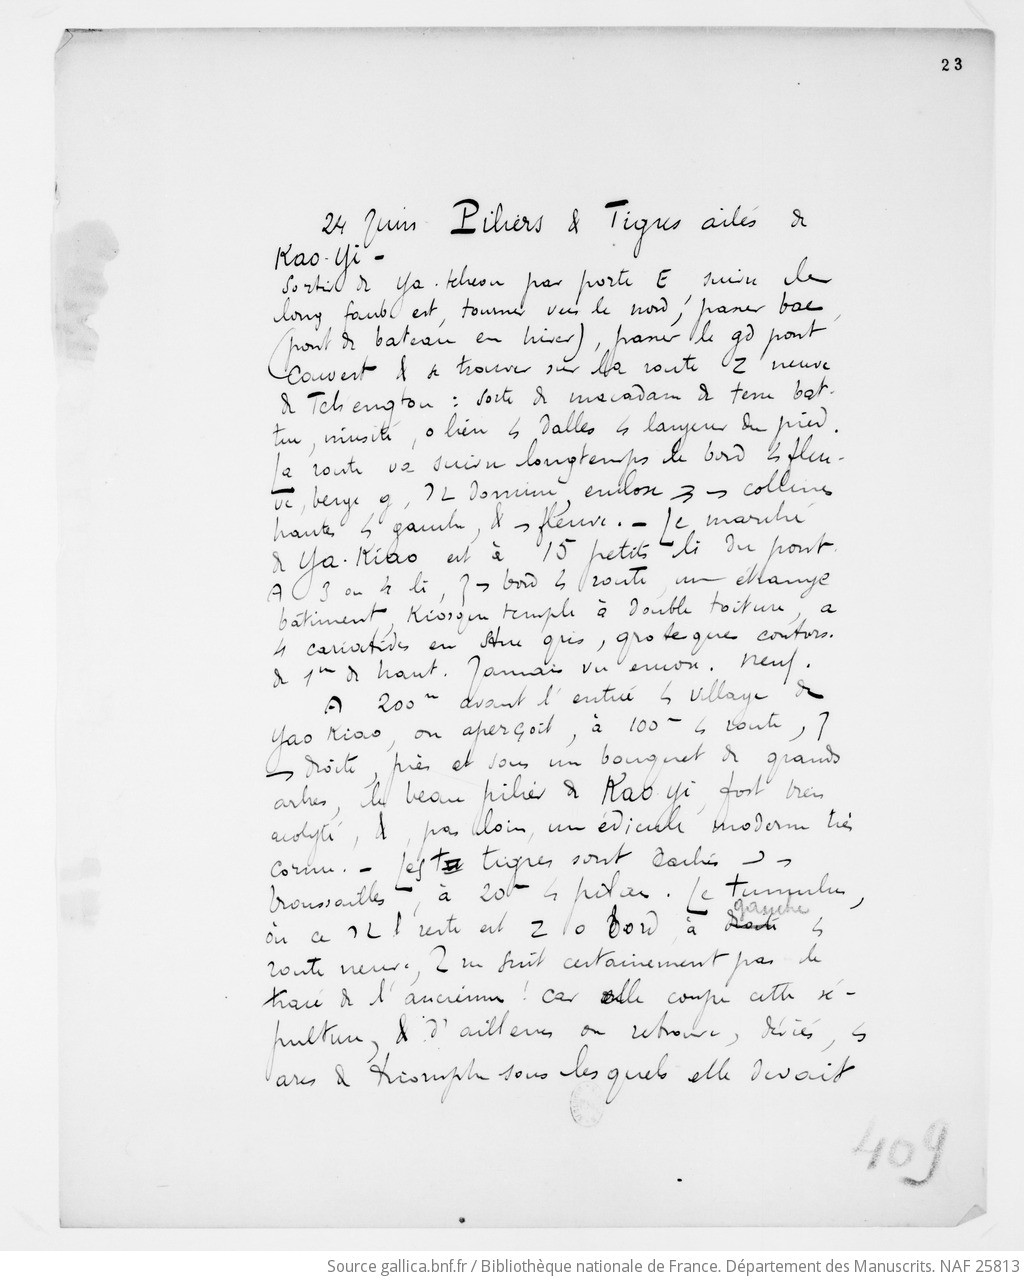 23
24 Juin Piliers & Tigres ailés de
Kao-Yi -
Sortir de Ya-tcheou par porte E, suivre le
long faub est, tourner vers le nord, passer bac
(pont de bateau en hiver), passer le gd pont
couvert & se trouver sur la route neuve
de Tchengtou : sorte de macadam de terre bat-
tue, inusité, dalles largeur du pied.
La route va suivre longtemps le bord fleu-
ve, berge g, dominé, enclose collines
hautes gauche, & fleuve. - Le marché
de Ya-Kiao est à 15 petits li du pont.
A 3 ou 4 li, bord route, un étrange
bâtiment, Kiosque temple à double toiture, a
4 cariatides en gris, grotesques contors.
de 1m de haut. Jamais vu encore. Neuf.
A 200m avant l'entrée village de
Yao Kiao, on aperçoit, à 100m route,
droite, près et sous un bouquet de grands
arbres, le beau pilier de Kao-yi, fort bien
acolyté, & pas loin, un édicule moderne très
cornu. - Les tigres sont cachés
broussailles, à 20m pilier. Le tumulus,
où ce reste est bord, à gauche
route neuve, ne suit certainement pas le
tracé de l'ancienne ! car elle coupe cette sé-
pulture, & d'ailleurs on retrouve, déviés,
arcs de triomphe sous lesquels elle devait
409
Source gallica.bnf.fr / Bibliothèque nationale de France. Département des Manuscrits. NAF 25813